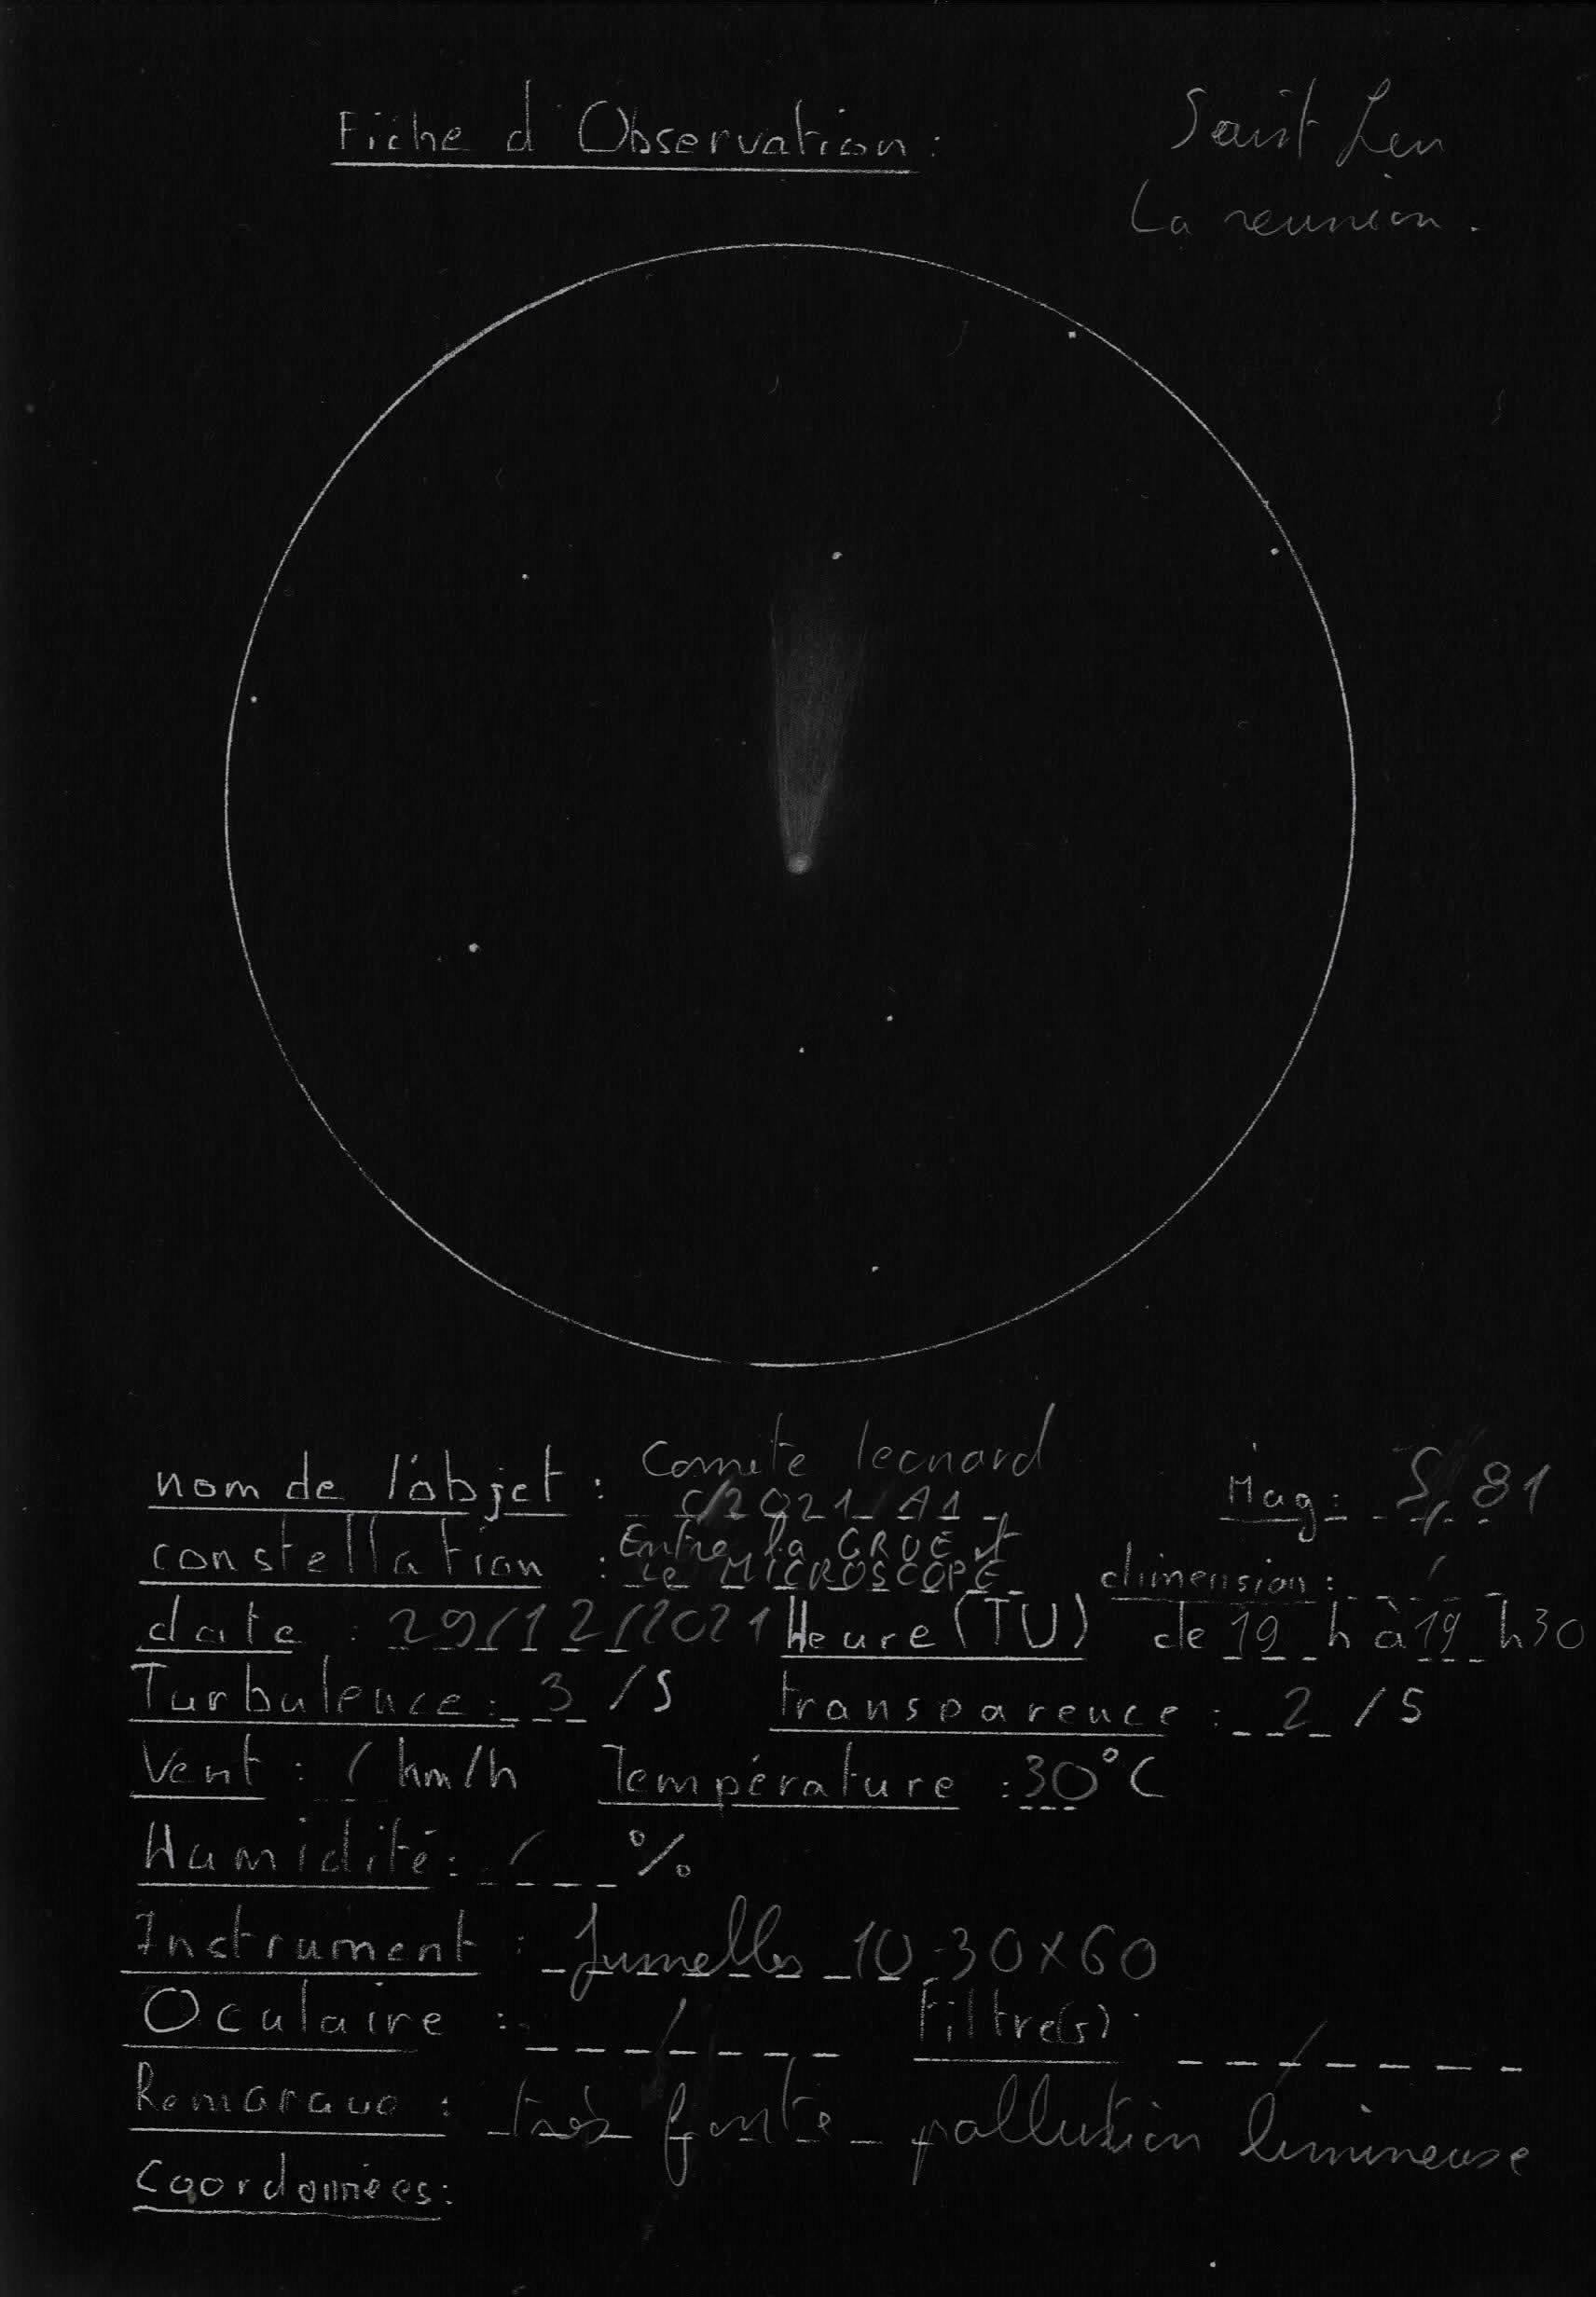 Fiche d'Observation :
Saint Leu
La reunion.
nom de l'objet : Comète leonard
C/2021 A1
Mag : 5,81
constellation : Entre la GRUE et
Le MICROSCOPE
dimension : /
date : 29/12/2021 Heure (TU) de 19 h à 19 h30
Turbulence : 3 /5 transparence : 2 /5
Vent : / km/h Température : 30°C
Humidité : / %
Instrument : Jumelles 10-30x60
Oculaire : / Filtre(s) : /
Remarque : très forte pollution lumineuse
Coordonnées :